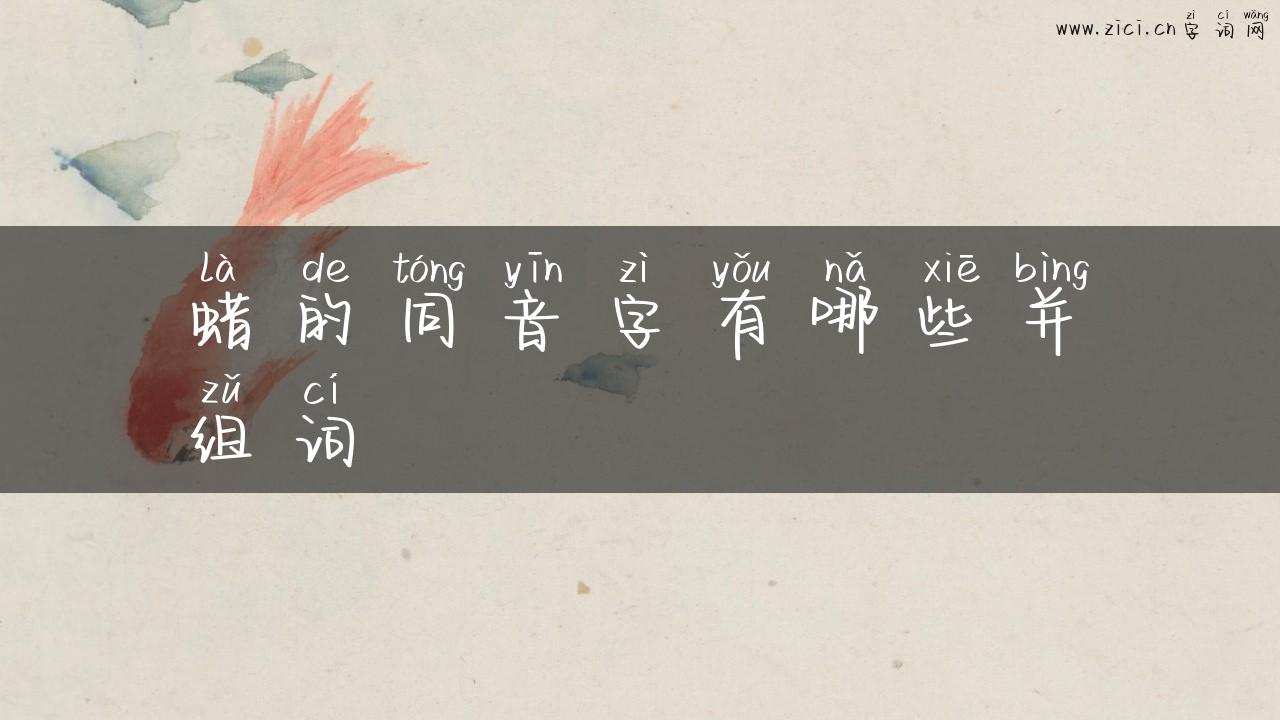 zì cí wǎng
www.zici.cn 字 词 网
là de tóng yīn zì yǒu nǎ xiē bìng
蜡 的 同 音 字 有 哪 些 并
zǔ cí
组 词